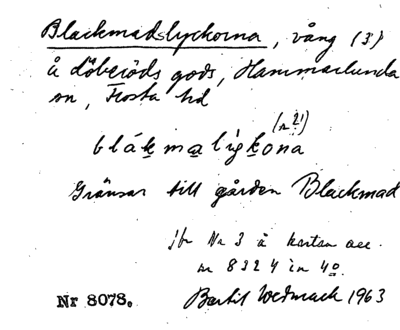 Blackmadslyckorna, vång (3)
å Löberöds gods, Hammarlunda
sn, Frosta hd
(n 2!)
blákmaligkona
Gränsar till gården Blackmad
jfr Nr 3 å kartan acc.
nr 8324 in 4o.
Nr 8078. Bertil Wedmark 1963